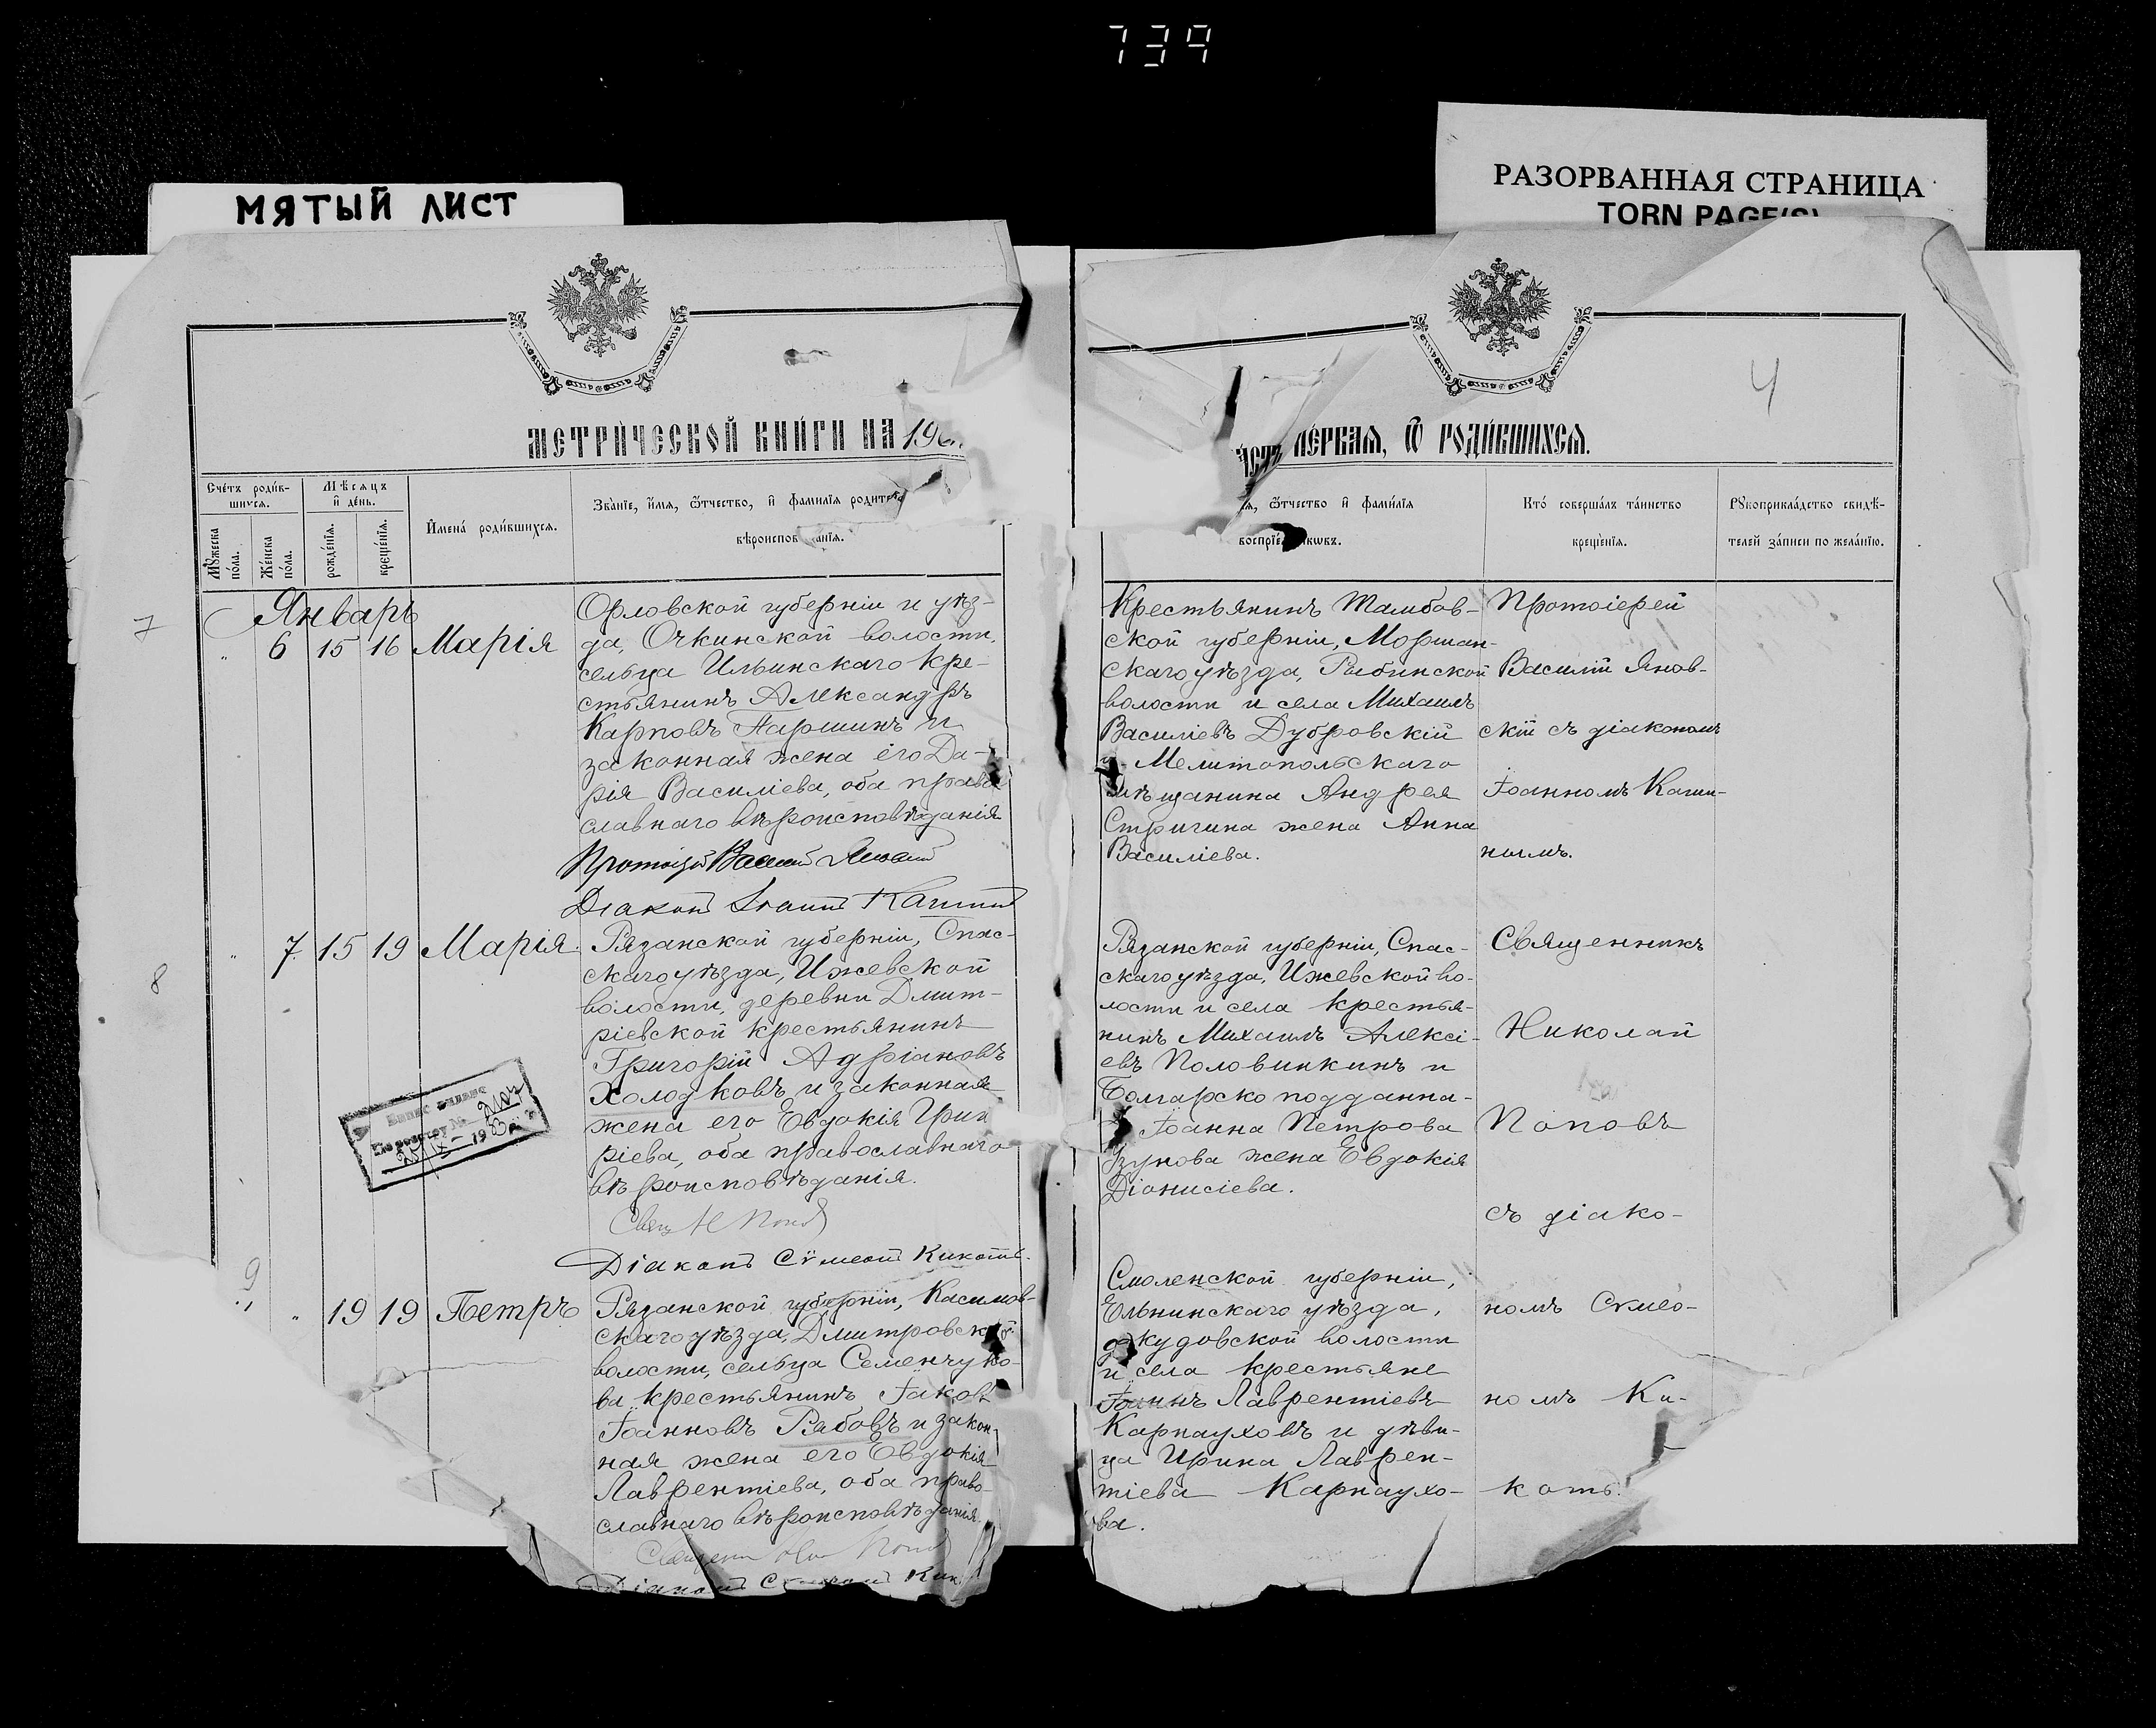 739
МЯТЫЙ ЛИСТ
РАЗОРВАННАЯ СТРАНИЦА
TORN PAGE(S)
4
МЕТРИ́ЧЕСКОЙ КНИ́ГИ НА 190
ПЕ́РВАЯ, Ѿ РОДИ́ВШИХСЯ.
Сче́тъ роди́в-
шихся.
Мѣ́сяцъ
и҆ де́нь.
Мꙋ́жеска
по́ла.
Же́нска
по́ла.
рожде́нїя.
креще́нїя.
И҆мена̀ роди́вшихся.
Зва́нїе, и҆́мя, ѻ҆́тчество, и҆ фами́лїя родите
вѣроиспов анїя.
ѻ҆́тчество и҆ фами́лїя
воспрїе никѡвъ.
Кто̀ соверша́лъ та́инство
креще́нїя.
Рꙋкоприкла́дство свидѣ́-
телей за́писи по жела́нїю.
Январь
7
" 6 15 16 Марія
Орловской губерніи и уѣз-
да, Очкинской волости,
сельца Ильинскаго кре-
стьянинъ Александръ
Карповъ Паршинъ и
законная жена его Да-
рія Василіева, оба право
славнаго вѣроисповѣданія
Протоіерей Василій Яновскій
Діаконъ Іоаннъ Кашинъ
Крестьянинъ Тамбов-
ской губерніи, Моршан-
скаго уѣзда, Рыбинской
волости и села Михаилъ
Василіевъ Дубровскій
и Мелитопольскаго
мѣщанина Андрея
Стригина жена Анна
Василіева.
Протоіерей
Василій Янов-
скій съ діакономъ
Іоанномъ Каши-
нымъ.
8
" 7. 15 19 Марія.
Рязанской губерніи, Спас-
скаго уѣзда, Ижевской
волости, деревни Дмит-
ріевской крестьянинъ
Григорій Адріановъ
Холодковъ и законная
жена его Евдокія Григ
ріева, оба православнаго
вѣроисповѣданія.
Свящ Н Поповъ
Діаконъ Сѵмеонъ Кикоть.
Рязанской губерніи, Спас-
скаго уѣзда, Ижевской во-
лости и села крестья-
нинъ Михаилъ Алексі-
евъ Половинкинъ и
Болгарско подданна-
Іоанна Петрова
Узунова жена Евдокія
Діонисіева.
Священникъ
Николай
Поповъ
съ діако-
По реестру №
9
" 19 19 Петръ
Рязанской губерніи, Касимов-
скаго уѣзда, Дмитровской
волости, сельца Семенчуко-
ва крестьянинъ Іаковъ
Іоанновъ Рябовъ и закон-
ная жена его Евдокія
Лаврентіева, оба право-
славнаго вѣроисповѣданія.
Поповъ
Діаконъ Сѵмеонъ Кик
Смоленской губерніи,
Ельнинскаго уѣзда,
кудовской волости
и села крестьяне
Іоаннъ Лаврентіевъ
Карнауховъ и дѣви-
ца Ирина Лаврен-
тіева Карнаухо-
ва.
номъ Сѵмео-
номъ Ки-
коть.